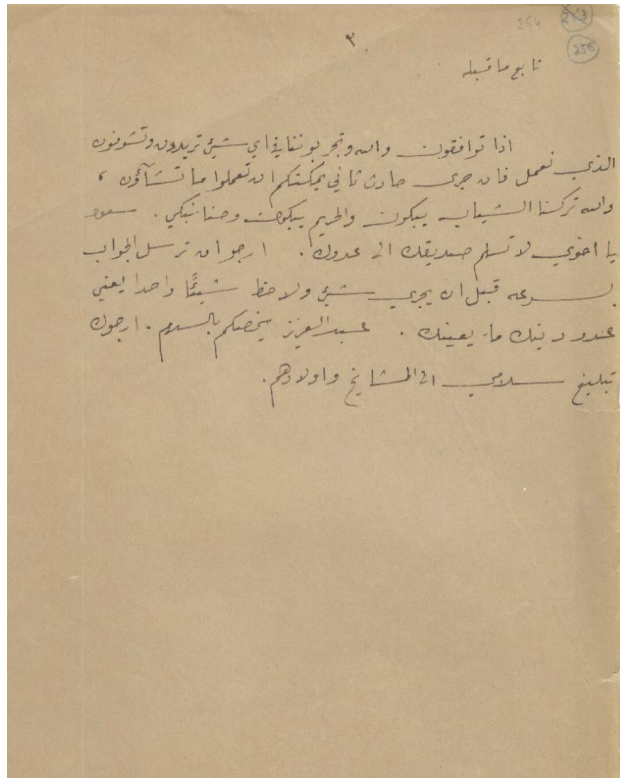 254
255
٣
تابع ما قبله
اذا توافقون والله وتجربوننا في اي شيئ تريدون وتشوفون
الذي نعمل فان جرى حادث ثاني يمكنكم ان تعملوا ما تشآؤن ،
والله تركنا الشياب يبكون والحريم يبكون وحنا نبكي . سعود
يا اخوي لا تسلم صديقك الى عدوك . ارجو ان ترسل الجواب
بسرعه قبل ان يجري شيئ ولاحظ شيئًا واحدا يعني
عدو دينك ما يعينك . عبدالعزيز يخصكم بالسلام . ارجوك
تبليغ سلامي الى المشايخ واولادهم .